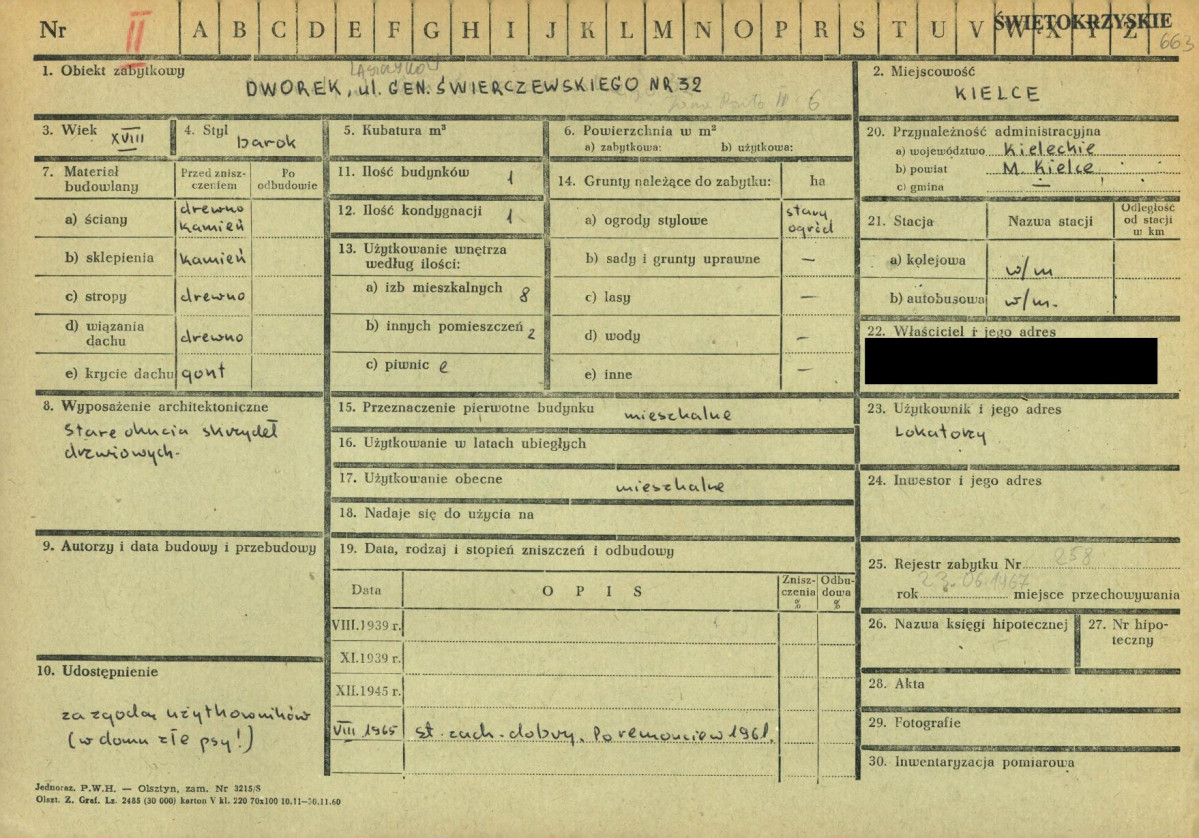 Nr II A B C D E F G H I J K L M N O P R S T U V W X Y Z ŚWIĘTOKRZYSKIE
663
1. Obiekt zabytkowy
DWOREK, ul. GEN. ŚWIERCZEWSKIEGO NR 32
6
2. Miejscowość
KIELCE
3. Wiek XVIII
4. Styl barok
5. Kubatura m³
6. Powierzchnia w m²
a) zabytkowa: b) użytkowa:
20. Przynależność administracyjna
a) województwo Kieleckie
b) powiat M. Kielce
c) gmina —
7. Materiał budowlany
Przed znisz-
czeniem
Po
odbudowie
a) ściany drewno kamień
b) sklepienia kamień
c) stropy drewno
d) wiązania dachu drewno
e) krycie dachu gont
11. Ilość budynków 1
12. Ilość kondygnacji 1
13. Użytkowanie wnętrza
według ilości:
a) izb mieszkalnych 8
b) innych pomieszczeń 2
c) piwnic 2
14. Grunty należące do zabytku: ha
a) ogrody stylowe stary ogród
b) sady i grunty uprawne —
c) lasy —
d) wody —
e) inne —
21. Stacja Nazwa stacji
Odległość
od stacji
w km
a) kolejowa w/m
b) autobusowa w/m.
22. Właściciel i jego adres
8. Wyposażenie architektoniczne
Stare okucia skrzydeł
drzwiowych.
15. Przeznaczenie pierwotne budynku mieszkalne
16. Użytkowanie w latach ubiegłych
17. Użytkowanie obecne mieszkalne
18. Nadaje się do użycia na
23. Użytkownik i jego adres
Lokatorzy
24. Inwestor i jego adres
9. Autorzy i data budowy i przebudowy
19. Data, rodzaj i stopień zniszczeń i odbudowy
Data OPIS
Znisz-
czenia
%
Odbu-
dowa
%
VIII.1939 r.
XI.1939 r.
XII.1945 r.
VIII 1965 st. zach. dobry. Po remoncie w 1961.
25. Rejestr zabytku Nr 258
23.06.1967
rok miejsce przechowywania
26. Nazwa księgi hipotecznej
27. Nr hipo-
teczny
28. Akta
29. Fotografie
30. Inwentaryzacja pomiarowa
10. Udostępnienie
za zgodą użytkowników
(w domu złe psy!)
Jednoraz. P.W.H. — Olsztyn, zam. Nr 3215/S
Olszt. Z. Graf. Lz. 2485 (30 000) karton V kl. 220 70x100 10.11—30.11.60